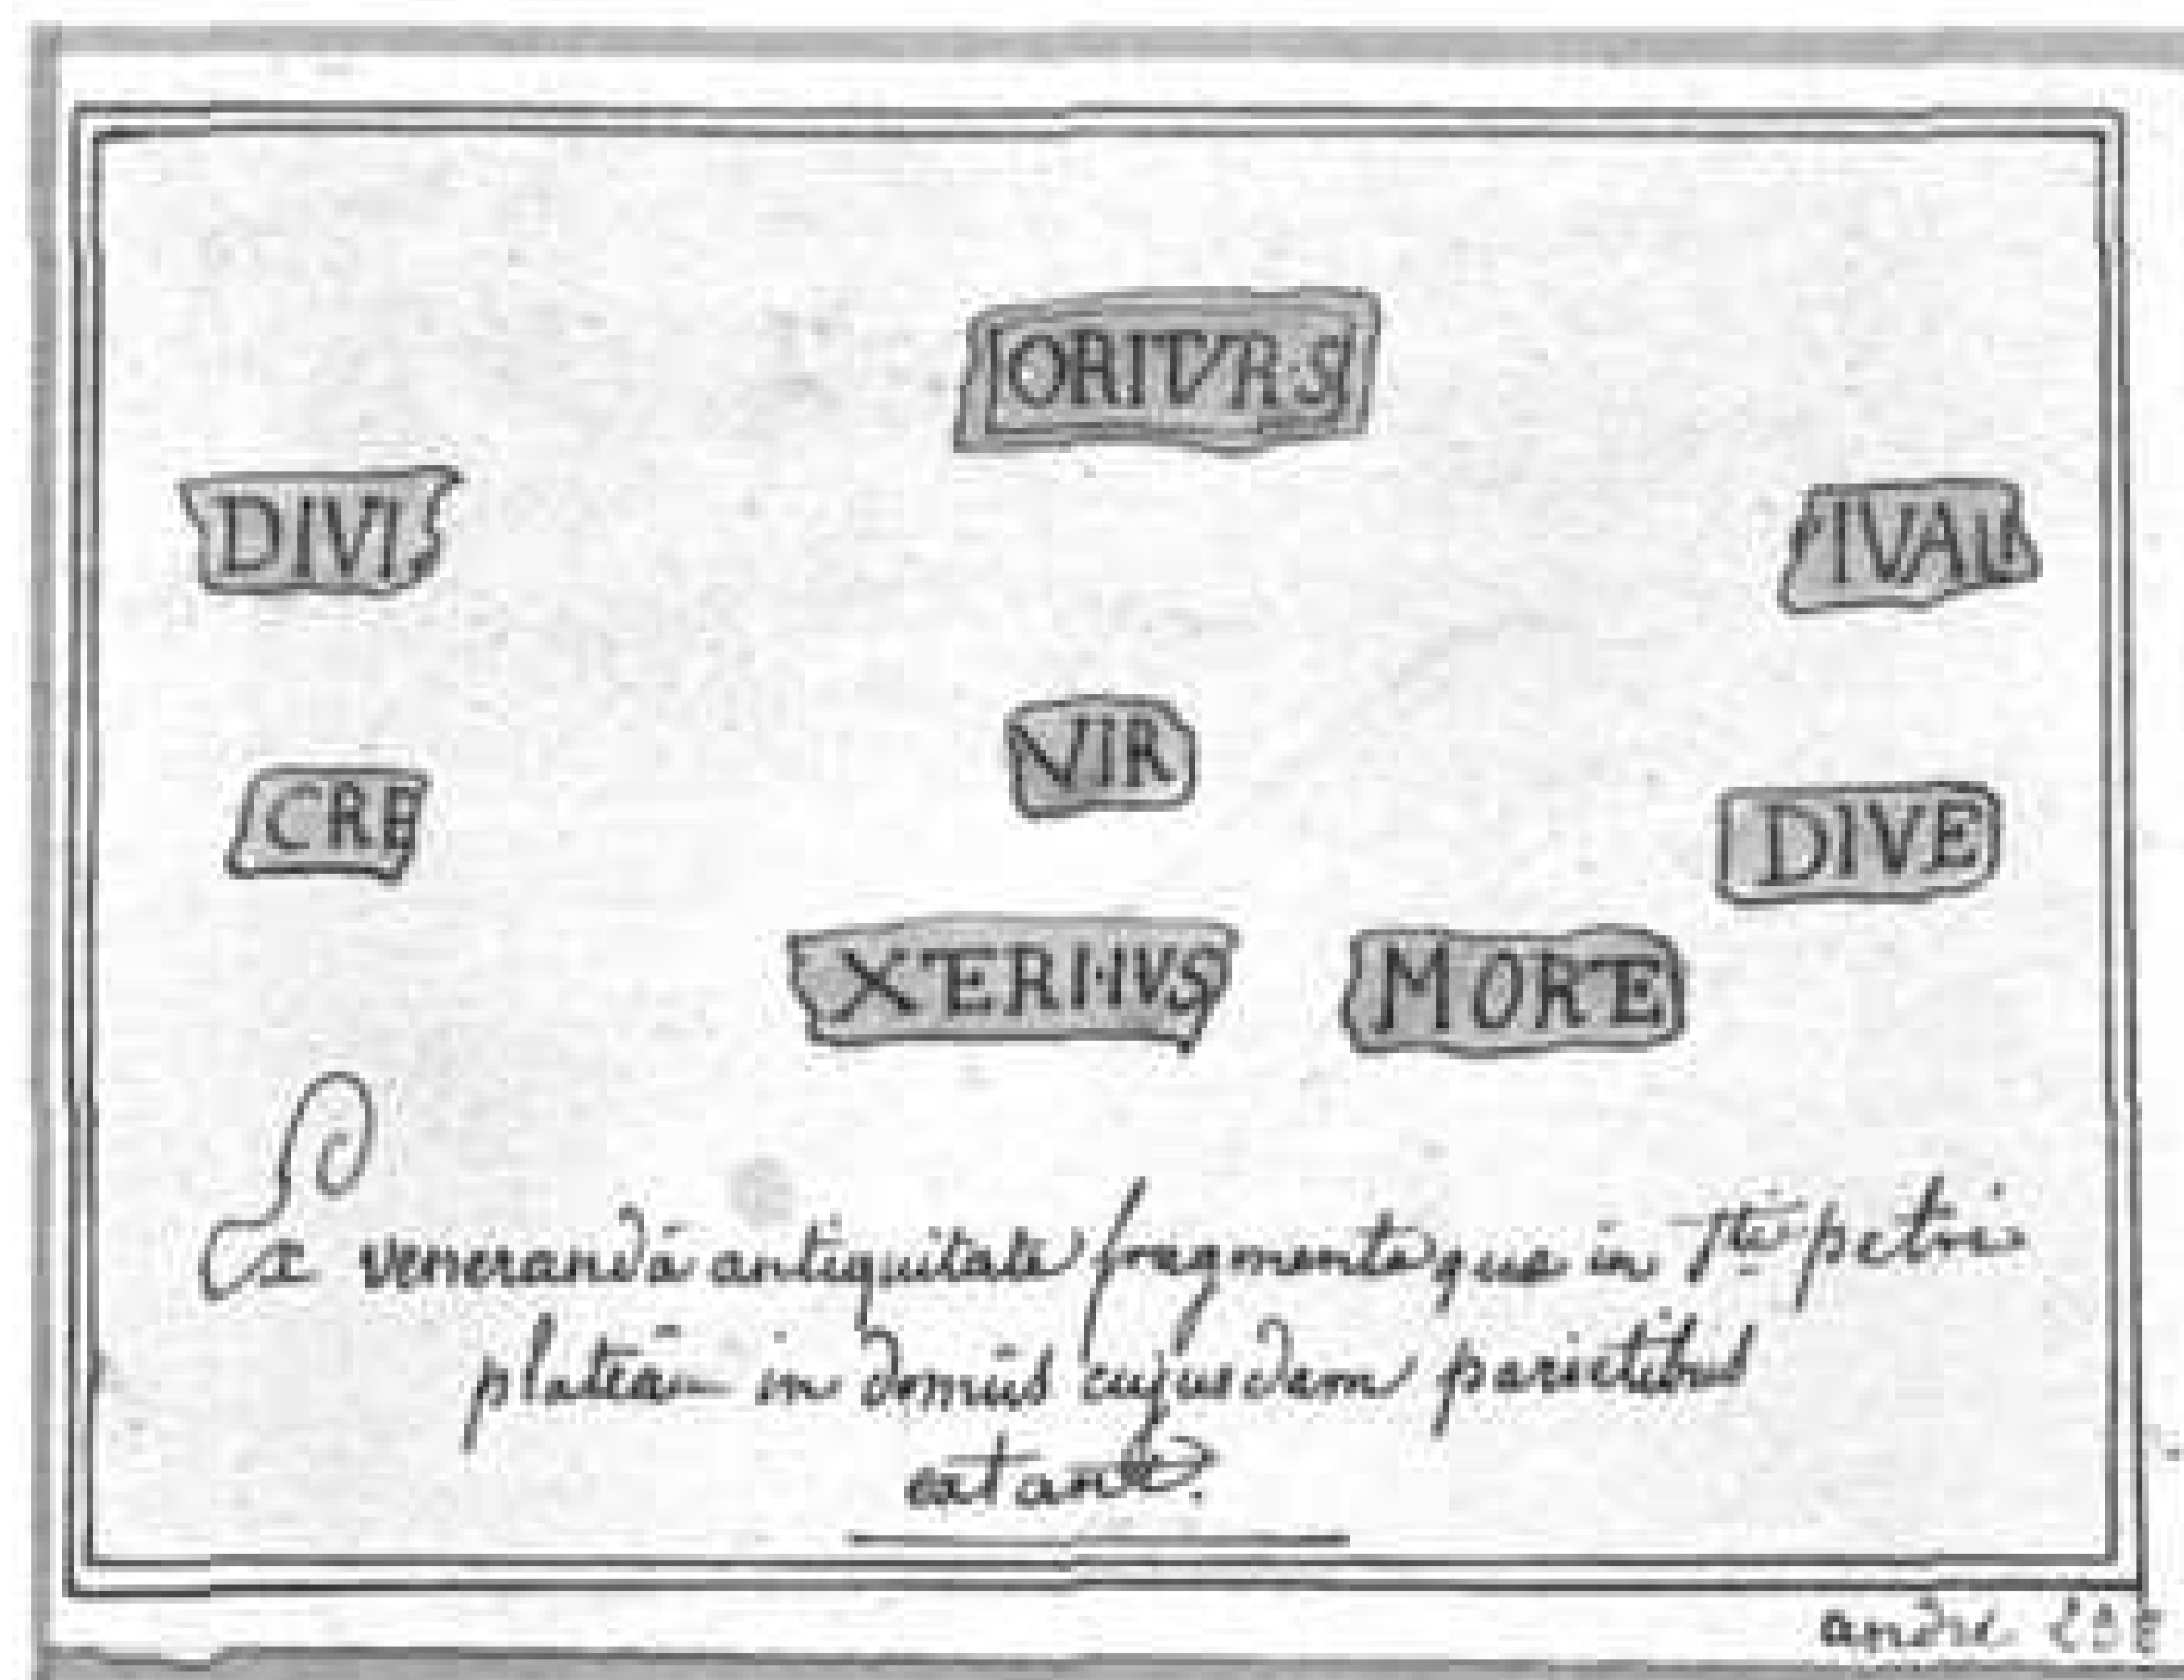 ORITVR·S
DIVI
IVAL
VIR
CRE
DIVE
XTERNVS
MORE
Ex venerandâ antiquitate fragmenta que in Sti petri
plateâ in domûs cujusdam parietibus
extant.
andré